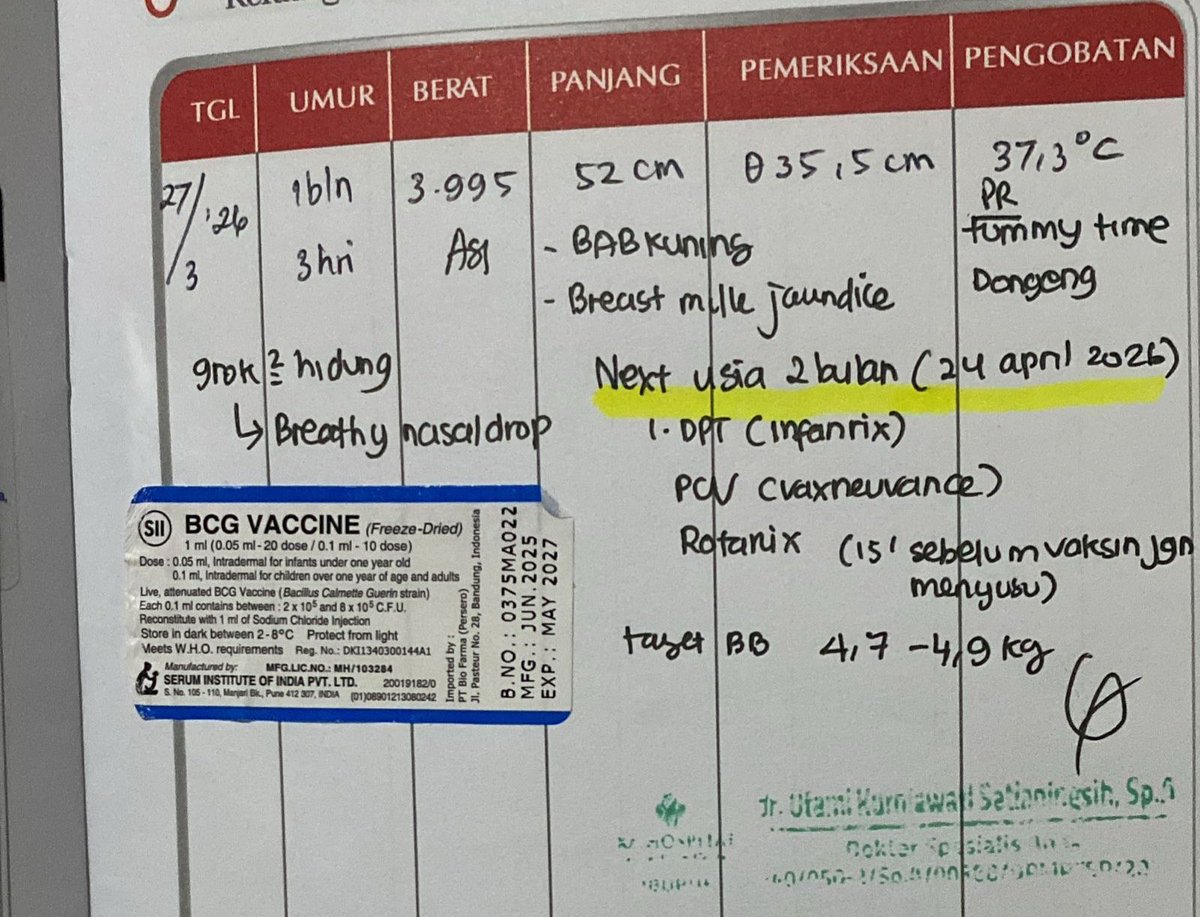 TGL UMUR BERAT PANJANG PEMERIKSAAN PENGOBATAN
27/3 '26 1bln 3.995 52 cm θ 35,5 cm 37,3°C
3 hri ASI - BAB Kuning PR
tummy time
- Breast milk jaundice Dongeng
grok² hidung
↳ Breathy nasal drop
Next usia 2 bulan (24 april 2026)
1. DPT (infanrix)
PCV (vaxneuvance)
Rotarix (15' sebelum vaksin jgn
menyusu)
target BB 4,7 - 4,9 kg
SII BCG VACCINE (Freeze-Dried)
1 ml (0.05 ml - 20 dose / 0.1 ml - 10 dose)
Dose : 0.05 ml, Intradermal for infants under one year old
0.1 ml, Intradermal for children over one year of age and adults
Live, attenuated BCG Vaccine (Bacillus Calmette Guerin strain)
Each 0.1 ml contains between : 2 x 10⁵ and 8 x 10⁵ C.F.U.
Reconstitute with 1 ml of Sodium Chloride Injection
Store in dark between 2-8°C Protect from light
Meets W.H.O. requirements Reg. No.: DKI1340300144A1
Manufactured by: MFG.LIC.NO.: MH/103284
SERUM INSTITUTE OF INDIA PVT. LTD. 20019182/0
S. No. 105 - 110, Manjari Bk., Pune 412 307, INDIA (01)08901213080242
Imported by :
PT Bio Farma (Persero)
Jl. Pasteur No. 28, Bandung, Indonesia
B.NO.: 0375MA022
MFG.: JUN.2025
EXP.: MAY 2027
dr. Utami Kurniawati Sp.A
Dokter Spesialis